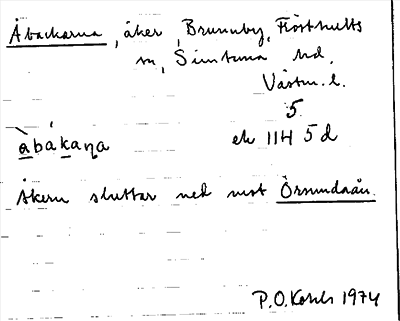 Åbackarna, åker, Brunnby, Frösthults
sn, Simtuna hd,
Västm. l.
5
åbákaṇa ek 11H 5d
Åkern sluttar ned mot Örsundaån.
P.O. 1974